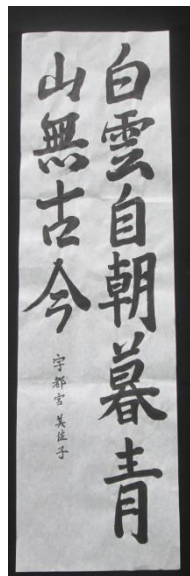 白雲自朝暮青
山無古今
宇都宮美佐子